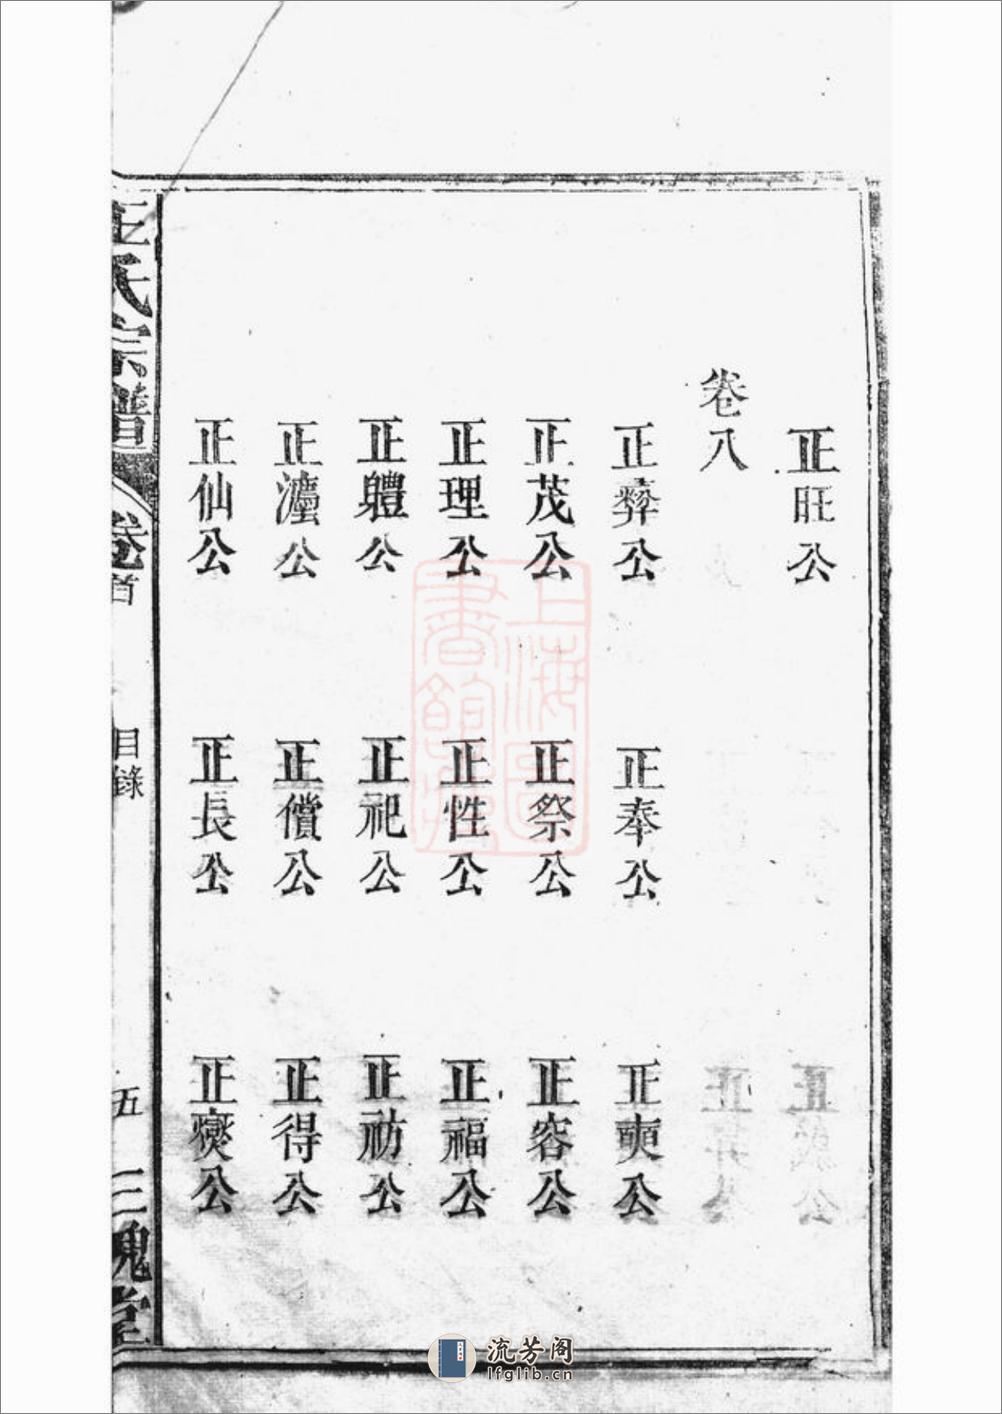 正旺公
卷八
正彝公 正奉公 正奭公
正茂公 正祭公 正容公
正理公 正性公 正福公
正軆公 正祀公 正祊公
正瀍公 正償公 正得公
正仙公 正長公 正燮公
王氏宗譜 卷首 目錄 五 三槐堂
上海圖書館藏
流芳阁
lfglib.cn